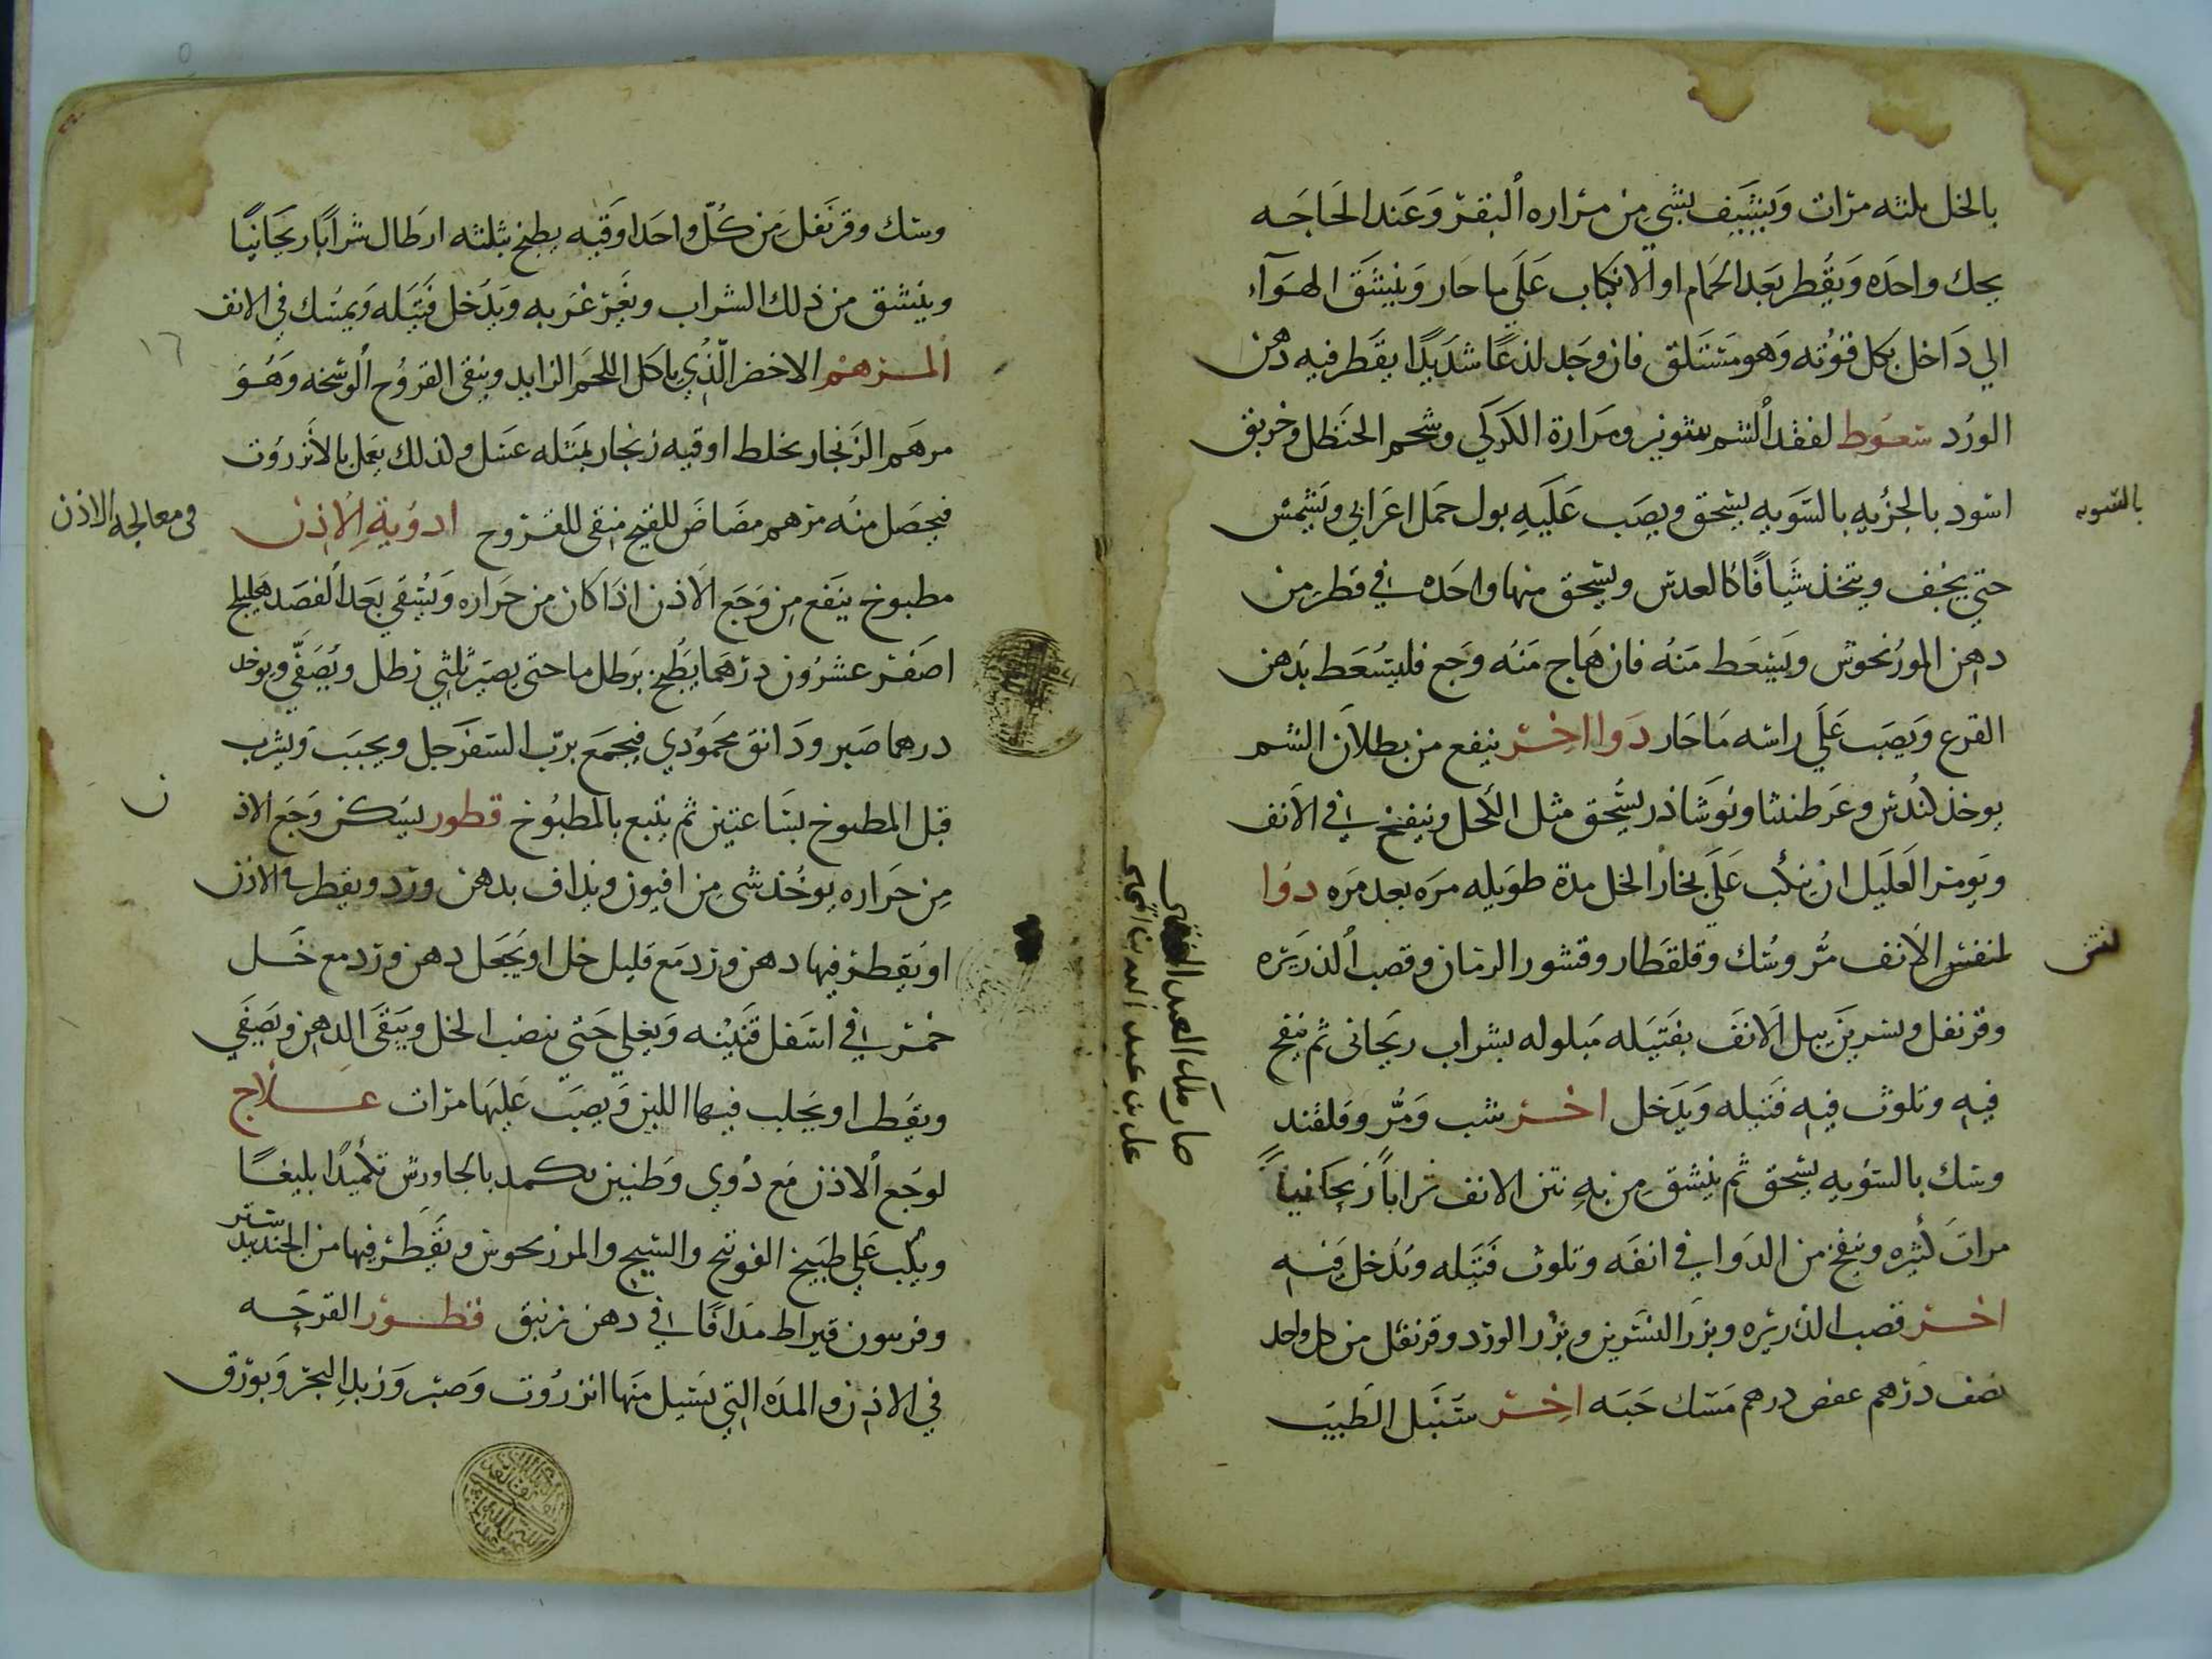 بالخل ثلثه مرات ويشيف بشي من مراره البقر وعند الحاجه
يحك واحده ويقطر بعد الحمام او الانكباب علي ما حار وينشق الهوآء
الي داخل بكل قوته وهو مستلق فان وجد لذعا شديدا يقطر فيه دهن
الورد سعوط لفقد الشم شونيز ومرارة الكركي وشحم الحنظل وخربق
اسود بالجزيه بالسويه يسحق ويصب عليه بول جمل اعرابي ويشمس
بالسويه
حتي يجف ويتخذ شيافا كالعدس ويسحق منها واحده في قطر من
دهن المورنجوش ويسعط منه فان هاج منه وجع فليسعط بدهن
القرع ويصب علي راسه ما حار دوا اخر ينفع من بطلان الشم
يوخذ كندس وعرطنثا ونوشاذر يسحق مثل الكحل وينفخ في الانف
ويومر العليل ان ينكب علي بخار الخل مدة طويله مره بعد مره دوا
لنتن الانف مر وسك وقلقطار وقشور الرمان وقصب الذريره
لنتن
وقرنفل ونسرين يبل الانف بفتيله مبلوله بشراب ريحاني ثم ينفخ
فيه وتلوث فيه فتيله ويدخل اخر شب ومر وقلقند
وسك بالسويه يسحق ثم ينشق من به نتن الانف شرابا ريحانيا
مرات كثيره وينفخ من الدوا في انفه وتلوث فتيله وتدخل فيه
اخر قصب الذريره وبزر النسرين وبزر الورد وقرنفل من كل واحد
نصف درهم عفص درهم مسك حبه اخر سنبل الطيب
صار ملك العبد الفقير
علي بن عبد
وسك وقرنفل من كل واحد اوقيه يطبخ بثلثه ارطال شرابا ريحانيا
وينشق من ذلك الشراب ويغرغر به ويدخل فتيله ويمسك في الانف
المرهم الاخضر الذي ياكل اللحم الزايد وينقي القروح الوسخه وهو
مرهم الزنجار يخلط اوقيه زنجار بمثله عسل ولذلك يعمل بالانزروت
فيحصل منه مرهم مصاص للقيح منقي للقروح ادوية الاذن
في معالجه الاذن
مطبوخ ينفع من وجع الاذن اذا كان من حراره ويسقي بعد الفصد هليلج
اصفر عشرون درهما يطبخ برطل ما حتي يصير ثلثي رطل ويصفي ويوخذ
درهما صبر ودانق محمودي فيجمع برب السفرجل ويحبب ويشرب
قبل المطبوخ بساعتين ثم يتبع بالمطبوخ قطور يسكن وجع الاذ
ن
من حراره يوخذ شي من افيون ويداف بدهن ورد ويقطر في الاذن
او يقطر فيها دهن ورد مع قليل خل او يجعل دهن ورد مع خل
خمر في اسفل قنينه ويغلي حتي ينضب الخل ويبقي الدهن ويصفي
ويقطر او يحلب فيها اللبن ويصب عليها مرات علاج
لوجع الاذن مع دوي وطنين يكمد بالجاورس تكميدا بليغا
ويكب علي طبيخ الفوتنج والشيح والمرزنجوش ويقطر فيها من الجندبيدستر
وفربيون قيراط مدافا في دهن زنبق قطور القرحه
في الاذن والمده التي تسيل منها انزروت وصبر وزبد البحر وبورق
١٦